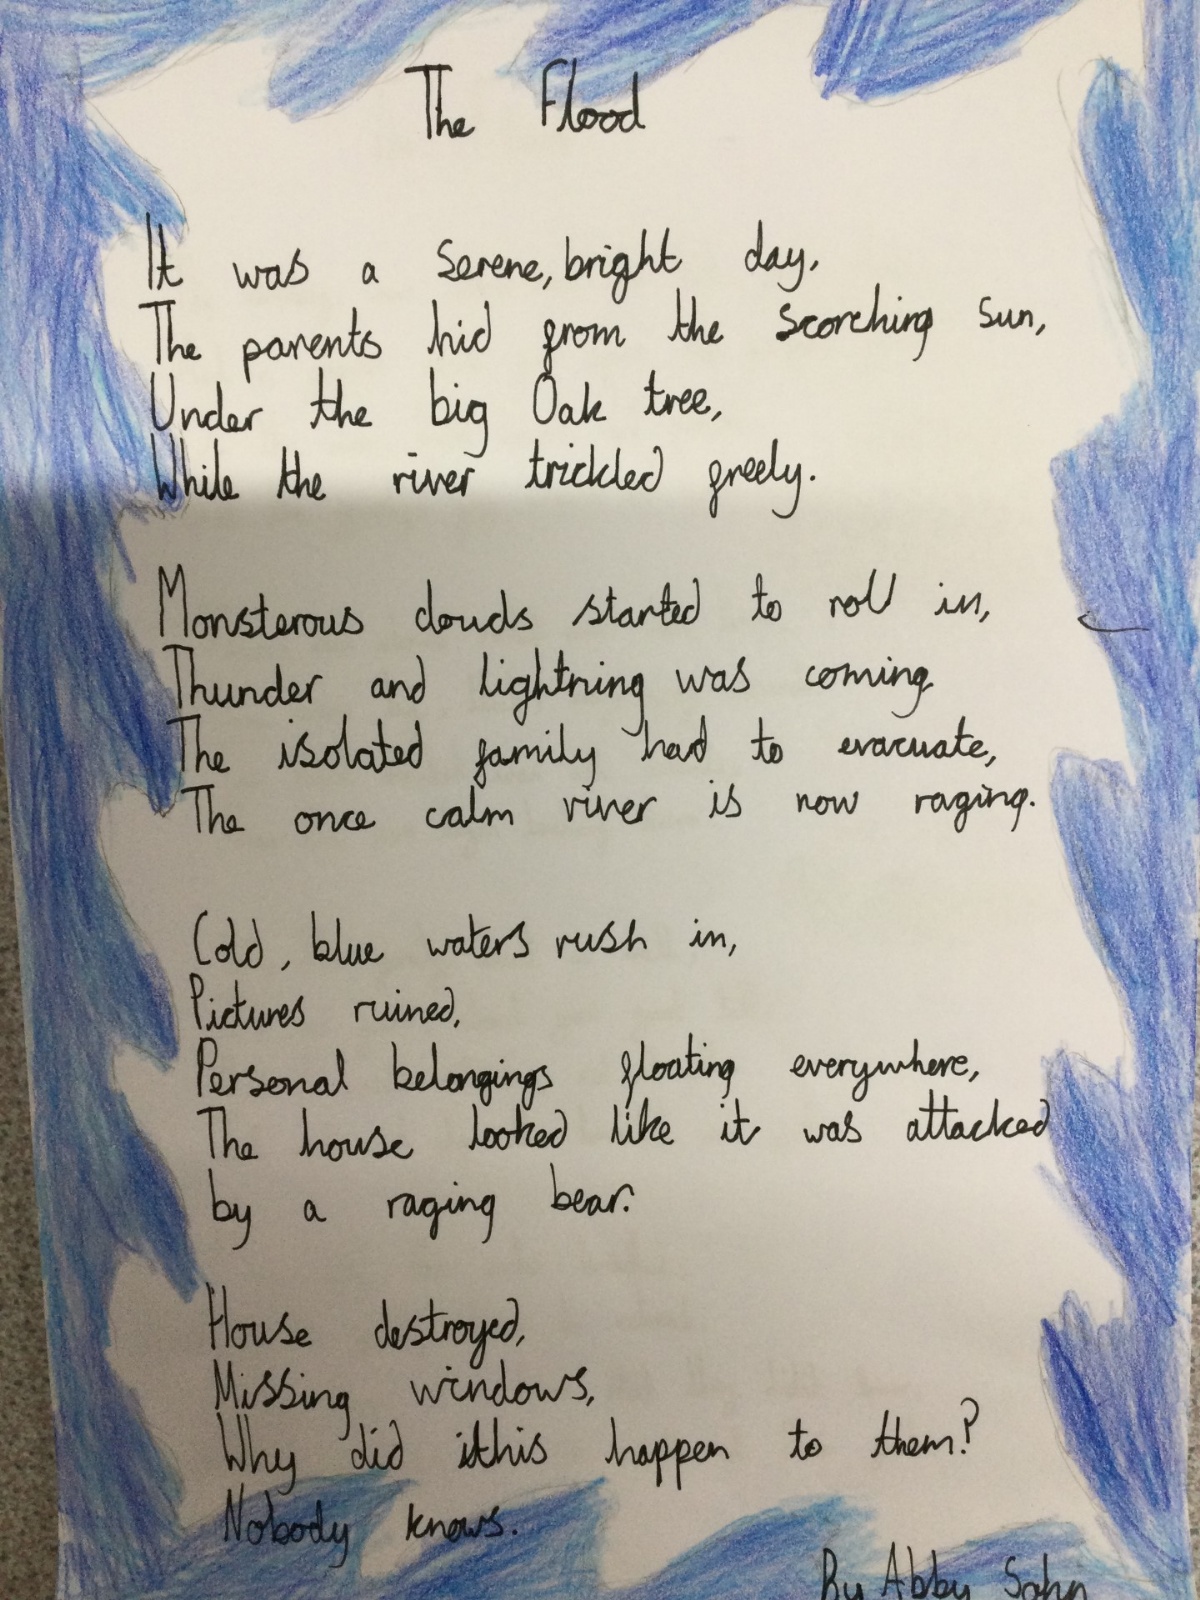 The Flood
It was a Serene, bright day,
The parents hid from the scorching sun,
Under the big Oak tree,
While the river trickled freely.
Monsterous clouds started to roll in,
Thunder and lightning was coming
The isolated family had to evacuate,
The once calm river is now raging.
Cold, blue waters rush in,
Pictures ruined,
Personal belongings floating everywhere,
The house looked like it was attacked
by a raging bear.
House destroyed,
Missing windows,
Why did this happen to them?
Nobody knows.
By Abby